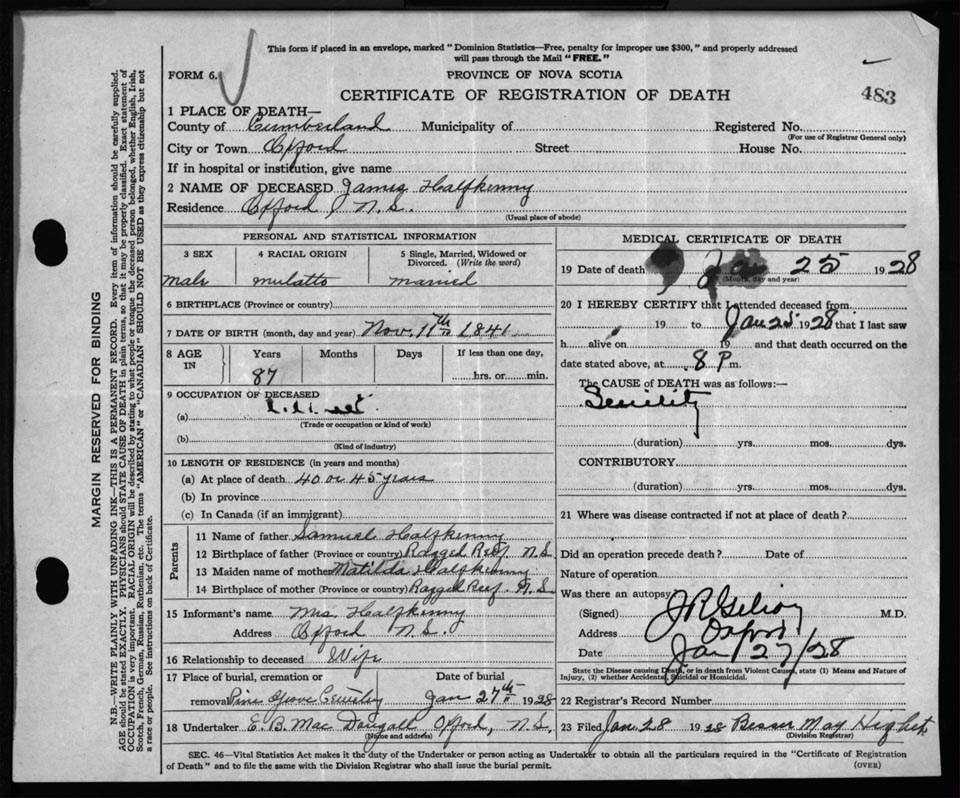 This form if placed in an envelope, marked "Dominion Statistics—Free, penalty for improper use $300," and properly addressed
will pass through the Mail "FREE."
FORM 6.
PROVINCE OF NOVA SCOTIA
CERTIFICATE OF REGISTRATION OF DEATH
483
1 PLACE OF DEATH—
County of Cumberland Municipality of Registered No.
(For use of Registrar General only)
City or Town Oxford Street House No.
If in hospital or institution, give name
2 NAME OF DECEASED James Halfkenny
Residence Oxford N.S.
(Usual place of abode)
PERSONAL AND STATISTICAL INFORMATION
3 SEX 4 RACIAL ORIGIN 5 Single, Married, Widowed or
Divorced. (Write the word)
male mulatto married
6 BIRTHPLACE (Province or country)
7 DATE OF BIRTH (month, day and year) Nov. 11th 1841
8 AGE IN Years Months Days If less than one day,
87 hrs. or min.
9 OCCUPATION OF DECEASED
(a)
(Trade or occupation or kind of work)
(b)
(Kind of industry)
10 LENGTH OF RESIDENCE (in years and months)
(a) At place of death 40 or 45 years
(b) In province
(c) In Canada (if an immigrant)
Parents
11 Name of father Samuel Halfkenny
12 Birthplace of father (Province or country) Ragged Reef N.S.
13 Maiden name of mother Matilda Halfkenny
14 Birthplace of mother (Province or country) Ragged Reef N.S.
15 Informant's name Mrs Halfkenny
Address Oxford N.S.
16 Relationship to deceased Wife
17 Place of burial, cremation or Date of burial
removal Pine Grove Cemetery Jan 27th 1928
18 Undertaker E. B. Mac Dougall Oxford, N.S.
(Name and address)
MEDICAL CERTIFICATE OF DEATH
19 Date of death 25 1928
(Month, day and year)
20 I HEREBY CERTIFY that I attended deceased from
19 to Jan 25 1928 that I last saw
h alive on 19 and that death occurred on the
date stated above, at 8 P.m.
The CAUSE OF DEATH was as follows:—
Senility
(duration) yrs. mos. dys.
CONTRIBUTORY
(duration) yrs. mos. dys.
21 Where was disease contracted if not at place of death?
Did an operation precede death? Date of
Nature of operation
Was there an autopsy?
(Signed) M.D.
Address Oxford
Date Jan 27/28
State the Disease causing Death, or in death from Violent Causes, state (1) Means and Nature of
Injury, (2) whether Accidental, Suicidal or Homicidal.
22 Registrar's Record Number
23 Filed Jan 28 1928 May
(Division Registrar)
SEC. 46—Vital Statistics Act makes it the duty of the Undertaker or person acting as Undertaker to obtain all the particulars required in the "Certificate of Registration
of Death" and to file the same with the Division Registrar who shall issue the burial permit. (OVER)
MARGIN RESERVED FOR BINDING
N.B.—WRITE PLAINLY WITH UNFADING INK—THIS IS A PERMANENT RECORD. Every item of information should be carefully supplied.
AGE should be stated EXACTLY. PHYSICIANS should STATE CAUSE OF DEATH in plain terms, so that it may be properly classified. Exact statement of
OCCUPATION is very important. RACIAL ORIGIN will be described by stating to what people or tongue the deceased person belonged, whether English, Irish,
Scotch, French, German, Russian, Ruthenian, etc. The terms "AMERICAN" or "CANADIAN" SHOULD NOT BE USED as they express citizenship but not
a race or people. See instructions on back of Certificate.